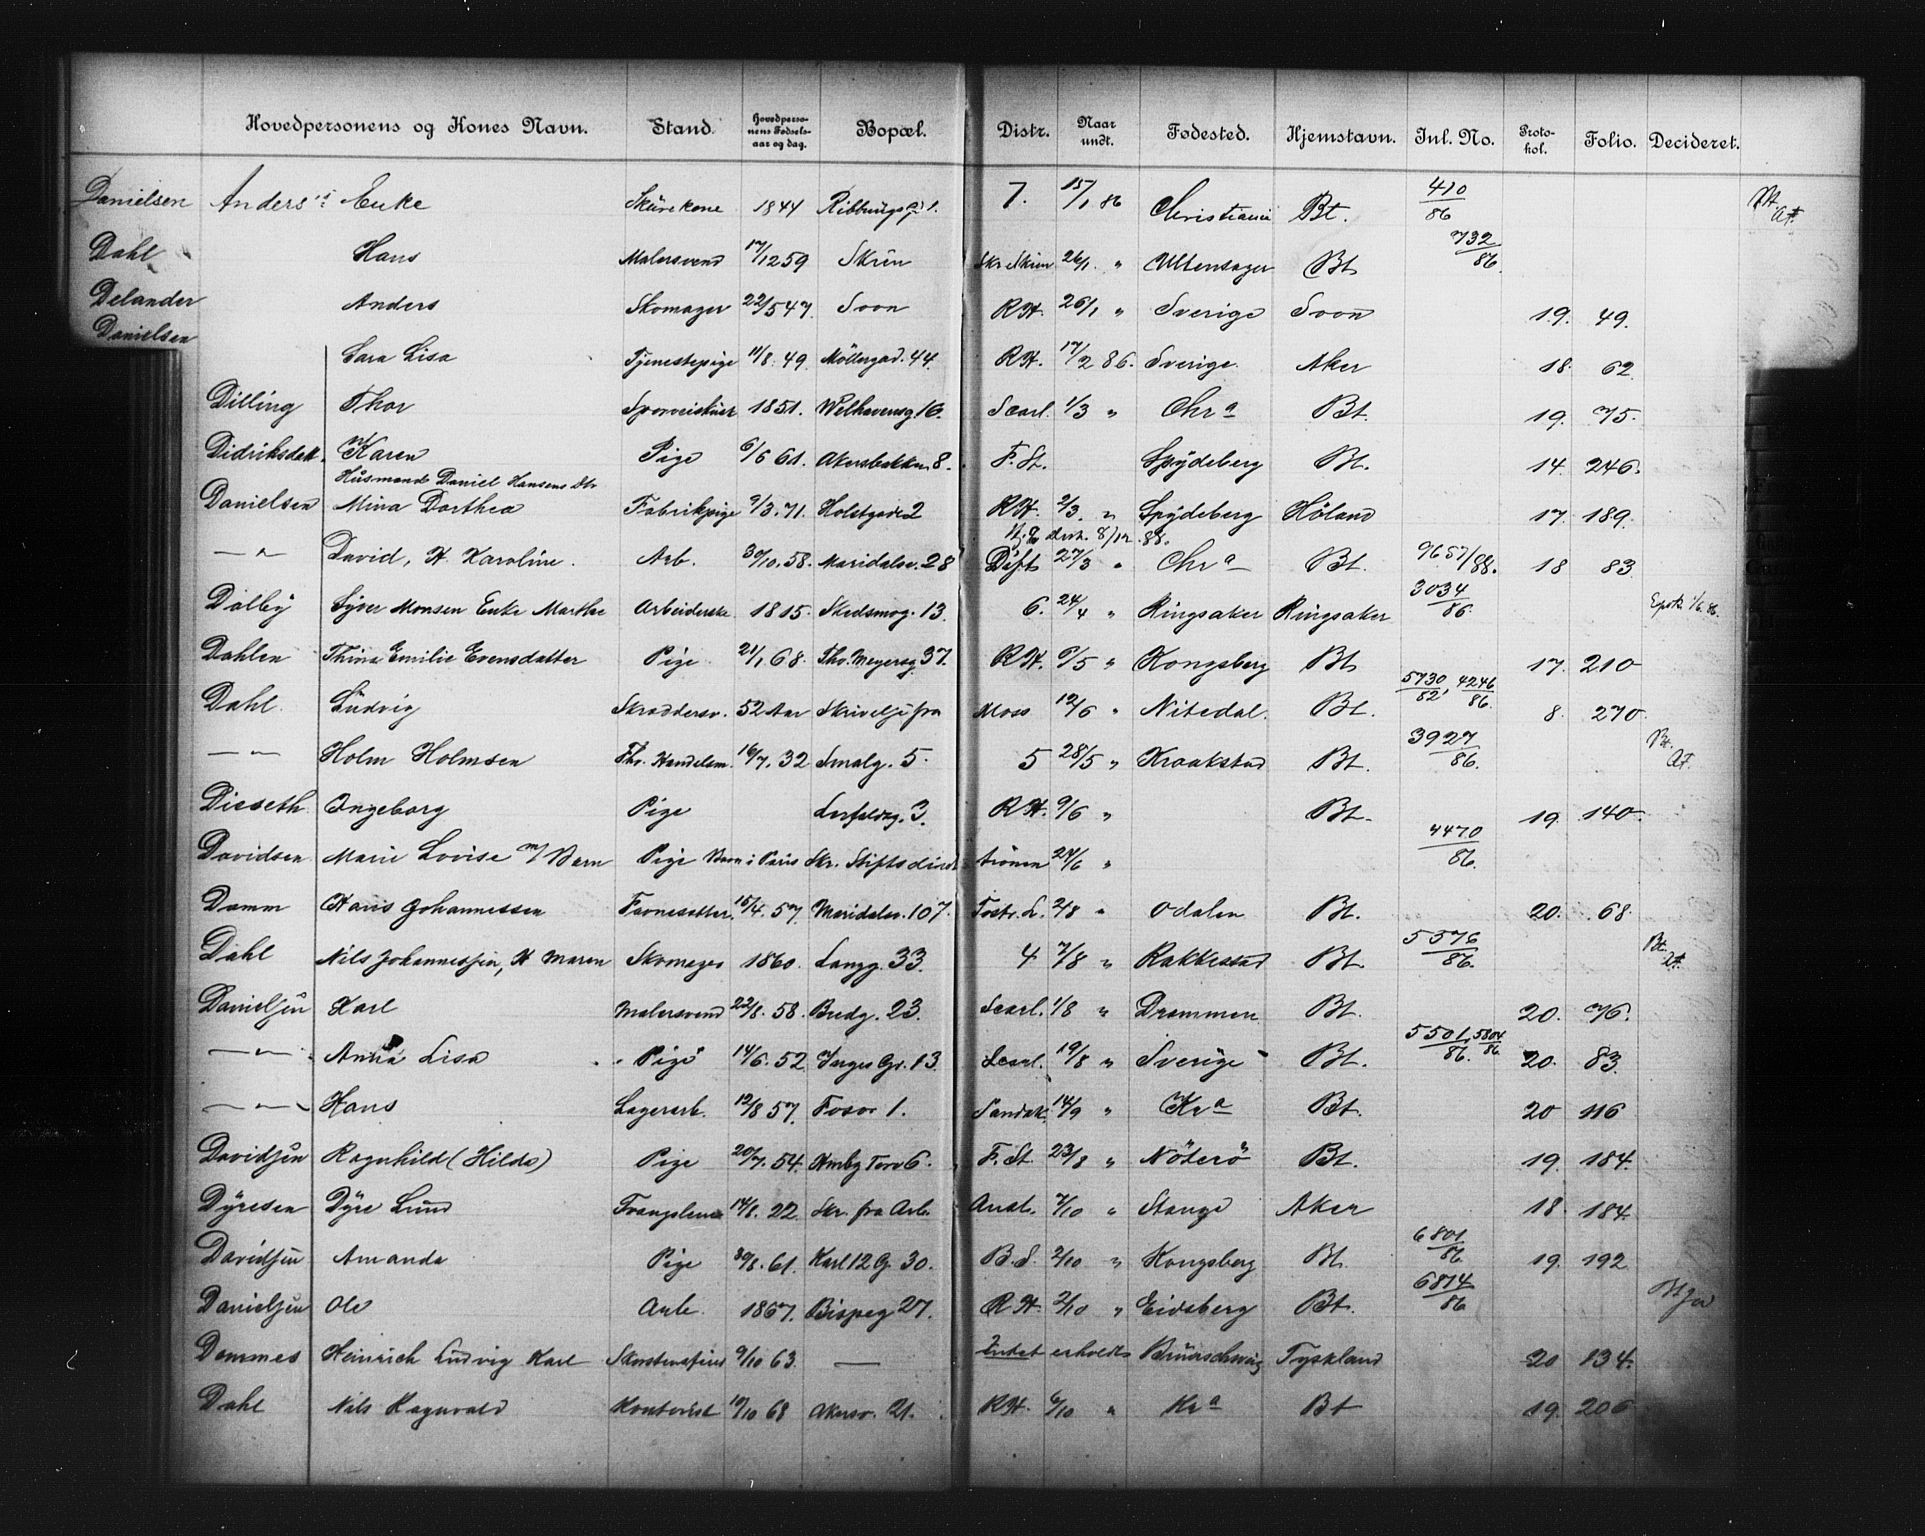 Hovedpersonens og Kones Navn. Stand. Hovedpersonens Fødselsaar og dag. Bopæl. Distr. Naar undt. Fødested. Hjemstavn. Inl. No. Protokol. Folio. Decideret.
Danielsen Anders's Enke Skurekone 1844 Ribbungsg. 1. 7. 15/1 86 Christiania Bt. 410/86 Bt.
Dahl Hans Malersvend 17/12 59 Skrin 26/1 " Ullensager Bt 732/86
Delander Anders Skomager 22/5 47 Soon RH. 26/1 " Sverige Soon 19. 49.
Danielsen Sara Lisa Tjenestepige 11/8. 49. Möllergad. 44. RH. 17/2 86. Sverige. Aker 18. 62.
Dilling Thor 1851. Welhavensg 16. Scarl. 1/3 " Chra Bt. 19. 75.
Didriksdatt. Karen Pige 6/6 61. Akersbakken 8. F. St. Spydeberg Bt. 14. 246.
Husmand Daniel Hansens Dtr
Danielsen Mina Dorthea Fabrikpige 9/3. 71. Holstgade 2 RH. 2/3. " Spydeberg Höland 17. 189.
8/12 88.
— " — David, H. Karoline. Arb. 30/10. 58. Maridalsv. 28 27/3 " Chra Bt. 9657/88. 18 83
Dalby Syver Monsen Enke Marthe Arbeiderske 1815. Skedsmog. 13. 6. 24/4 " Ringsaker Ringsaker 3034/86.
Dahlen Thina Emilie Evensdatter Pige 21/1 68. Thv. Meyersg. 37. RH. 9/5 " Kongsberg Bt 17. 210
Dahl. Ludvig Skræddersv. 52 Aar Skrivelse fra Moss 12/6 " Nitedal. Bt. 5730/82, 4246/86. 8. 270.
— " — Holm Holmsen Fhv. Handelsm. 16/7. 32 Smalg. 5. 5 28/5 " Kraakstad Bt. 3927/86. Bt.
Diseth Ingeborg Pige Lerfaldsg. 3. RH. 9/6 " Bt. 19. 140.
Davidsen Marie Lovise m/ Barn Pige Barn i Paris Skr. Stiftsdirektionen 24/6 " 4470/86.
Damm Hans Johannessen Farvesætter. 15/4. 57. Maridalsv. 107. 2/8 " Odalen Bt. 20. 68.
Dahl Nils Johannessen, H Maren Skomager 1860. Langg. 33. 4 7/8 " Rakkestad Bt. 5376/86. Bt.
Danielsen Karl Malersvend 22/8. 58. Bredg. 23. Scarl. 1/8 " Drammen Bt. 20. 76.
— " — Anna Lisa Pige 14/6. 52. Inges G. 13. Scarl. 19/8 " Sverige Bt. 5501/86. 5804/86 20. 83.
— " — Hans Lagerarb. 12/8 57. Fosv. 1. Sandak. 14/9 " Kra Bt. 20 116
Davidsen Ragnhild (Hilda) Pige 20/7. 54. Ankg Torv 6. F. St 23/8 " Nöterö Bt. 19. 184.
Dyresen Dyre Lund 14/8. 22. Skr. fra Arb. Anst. 7/10 " Stange Aker 18. 184.
Davidsen Amanda Pige 30/8. 61. Karl 12 G. 30. B. S. 2/10 " Kongsberg Bt. 6801/86. 19. 192
Danielsen Ole Arb. 1867. Bispeg 27. RH. 2/10 " Eidsberg Bt. 6814/86
Dammes Heinrich Ludvig Karl 9/10 63. — Intet erholdt Tyskland 20 134.
Dahl Nils Ragnvald Kontorist 19/10 68 Akersv. 21. RH. 6/10 " Kra Bt 19. 206